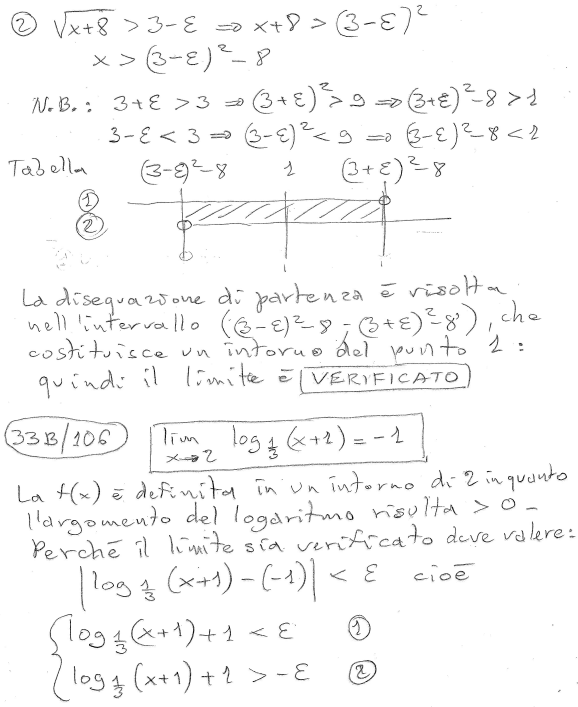 ② √x+8 > 3-ε ⇒ x+8 > (3-ε)²
x > (3-ε)² - 8
N.B.: 3+ε > 3 ⇒ (3+ε)² > 9 ⇒ (3+ε)² - 8 > 1
3-ε < 3 ⇒ (3-ε)² < 9 ⇒ (3-ε)² - 8 < 1
Tabella (3-ε)² - 8 1 (3+ε)² - 8
①
②
La disequazione di partenza è risolta
nell'intervallo ((3-ε)² - 8 ; (3+ε)² - 8), che
costituisce un intorno del punto 1:
quindi il limite è VERIFICATO
33B/106 lim x→2 log 1/3 (x+1) = -1
La f(x) è definita in un intorno di 2 in quanto
l'argomento del logaritmo risulta > 0 -
Perché il limite sia verificato deve valere:
|log 1/3 (x+1) - (-1)| < ε cioè
log 1/3 (x+1) + 1 < ε ①
log 1/3 (x+1) + 1 > -ε ②